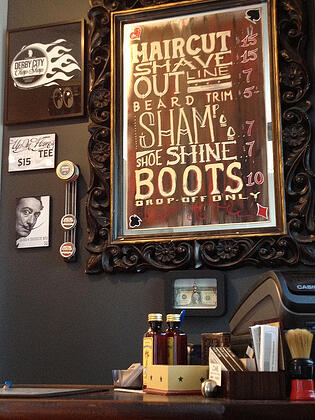 DERBY CITY
Chop Shop
HAIRCUT 15
SHAVE 15
OUT LINE 7
BEARD TRIM 5
SHAM'S 7
SHOE SHINE 7
BOOTS 10
DROP-OFF ONLY
TEE
$15
CASIO